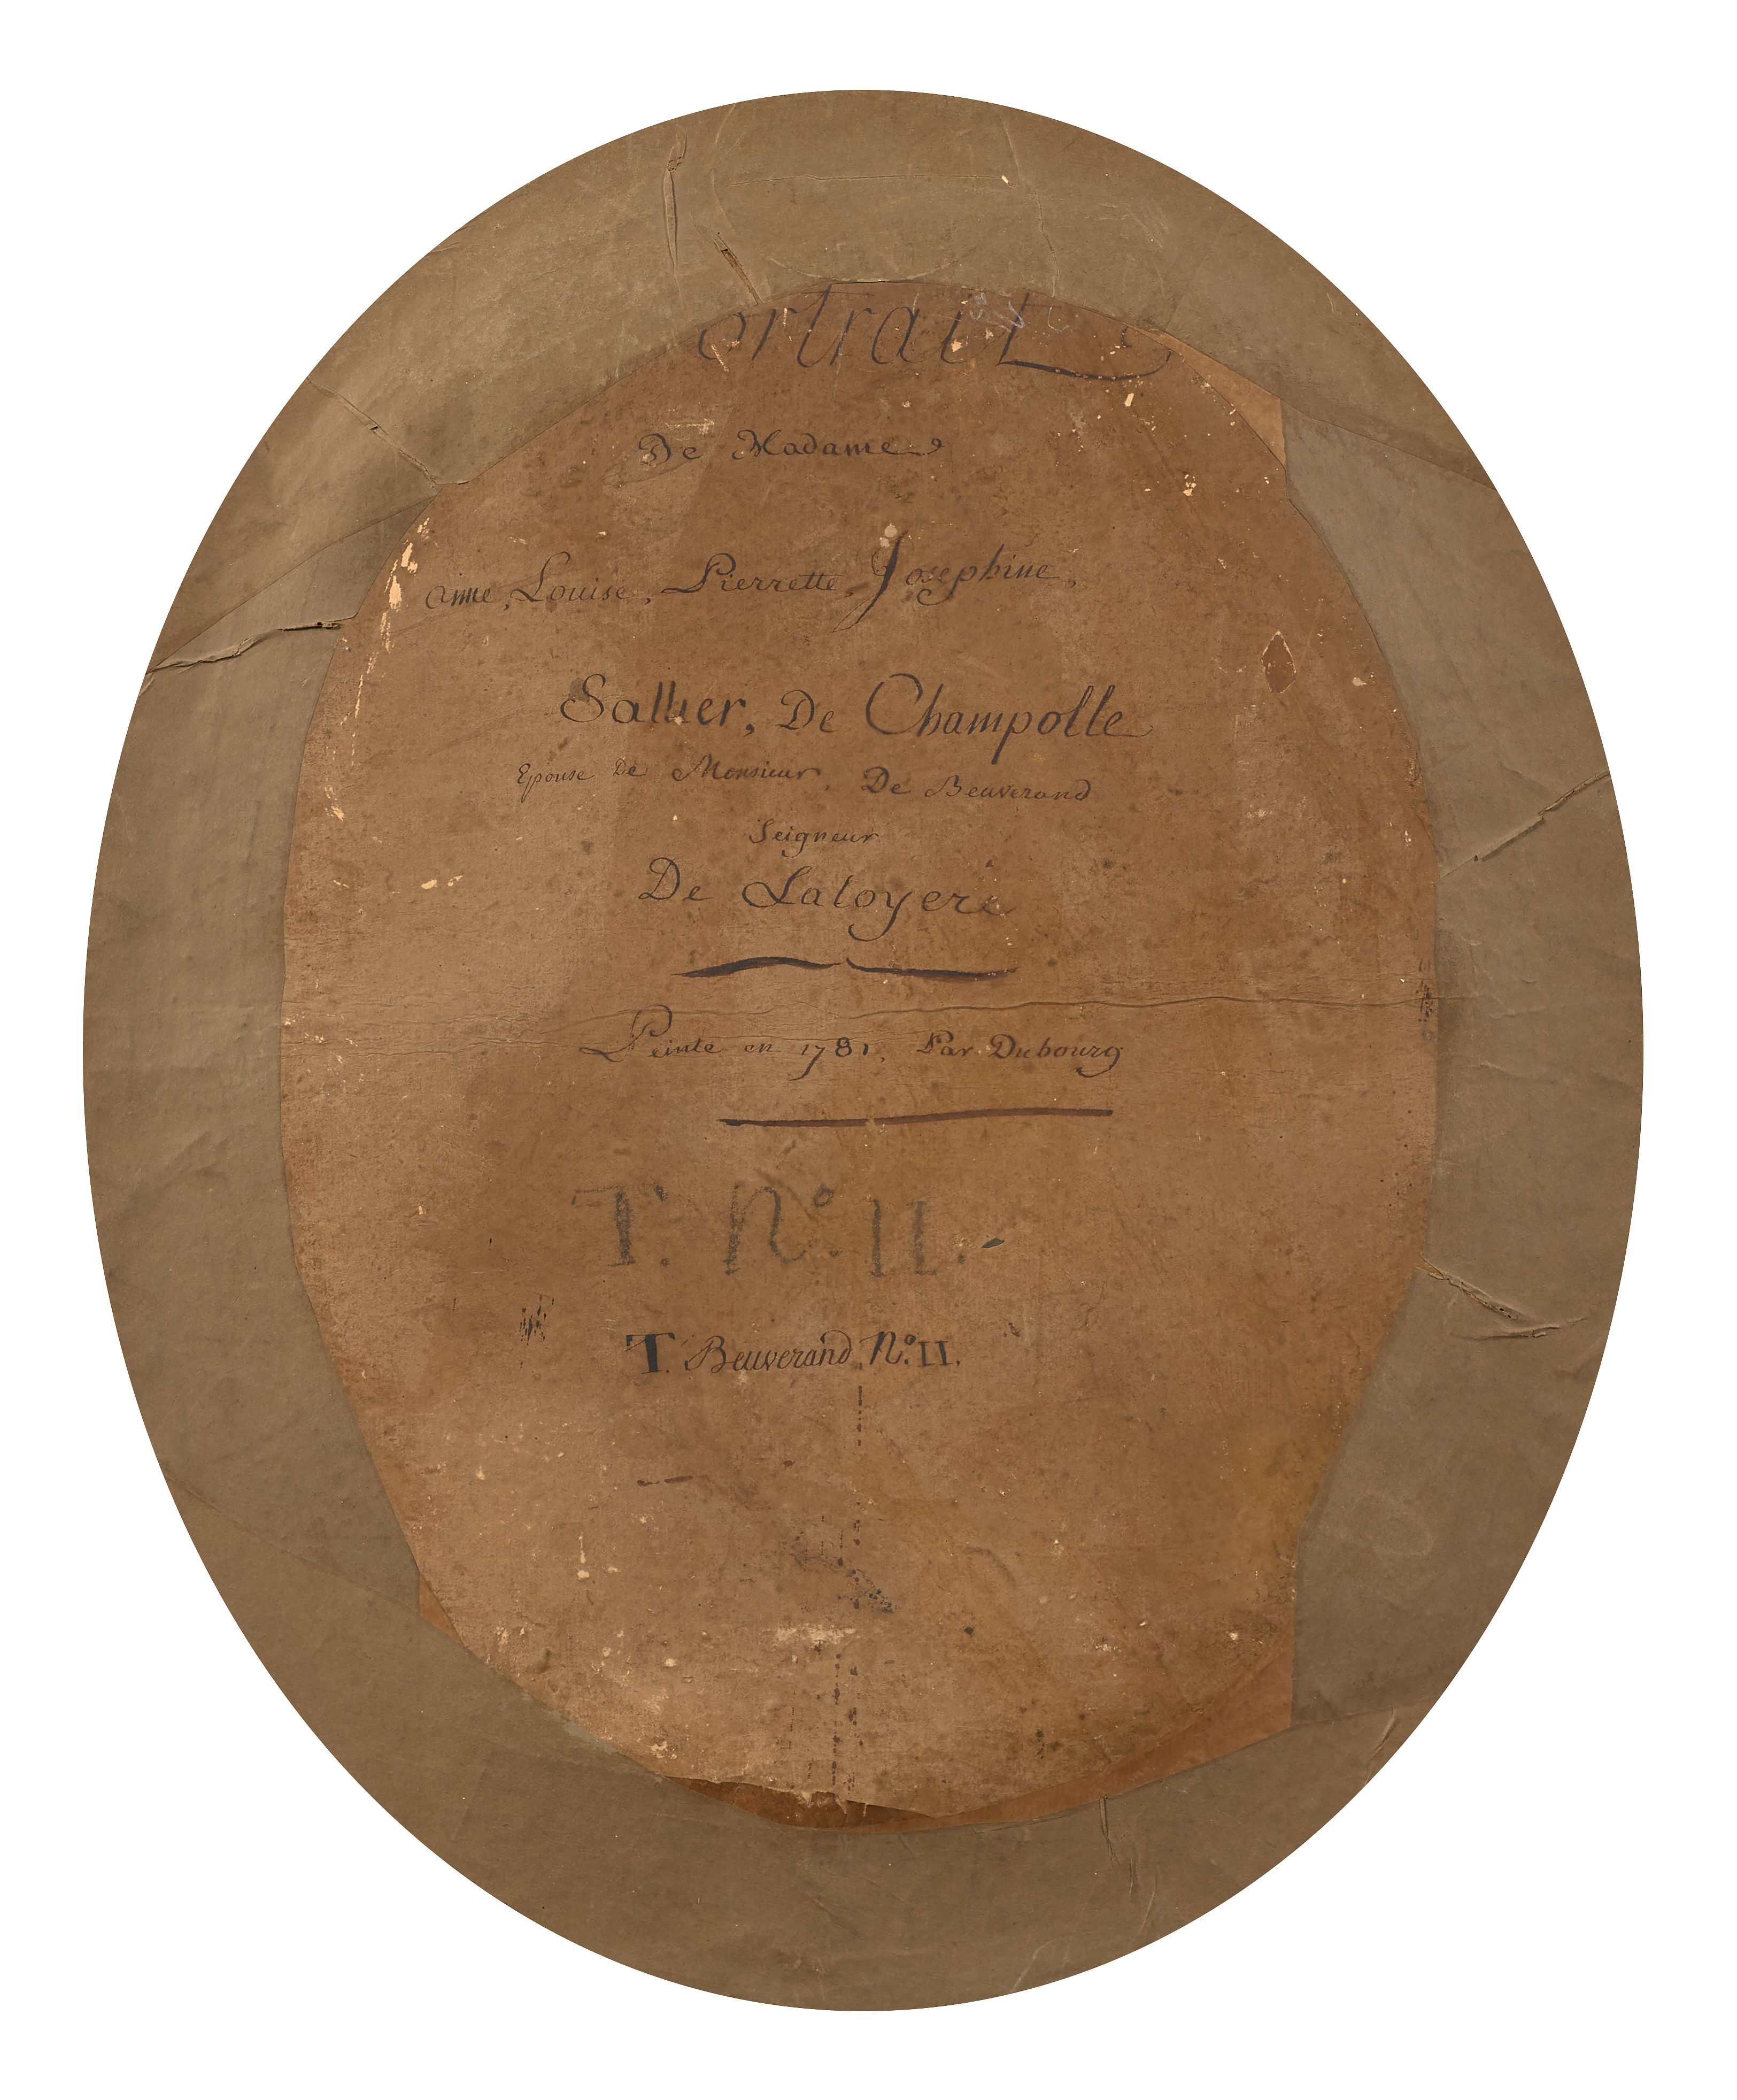 ortrait
De Madame
anne, Louise, Pierrette, Josephine,
Sallier, De Champolle
Epouse De Monsieur De Beuverand
Seigneur
De Laloyere
Peinte en 1781, Par Dubourg
T. N.º II.
T. Beuverand, N.º II.